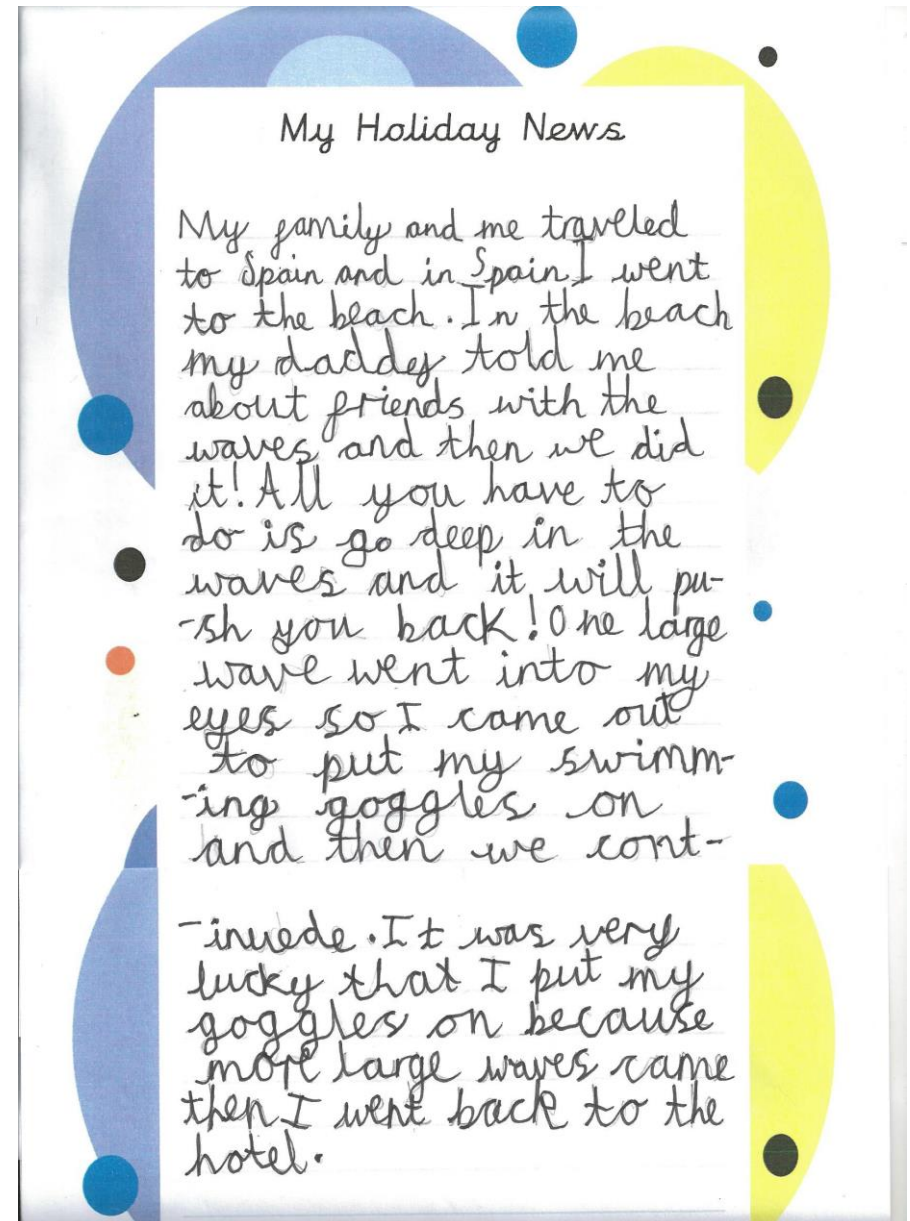 My Holiday News
My family and me traveled
to Spain and in Spain I went
to the beach. In the beach
my daddy told me
about friends with the
waves and then we did
it! All you have to
do is go deep in the
waves and it will pu-
-sh you back! One large
wave went into my
eyes so I came out
to put my swimm-
-ing goggles on
and then we cont-
-inuede. It was very
lucky that I put my
goggles on because
more large waves came
then I went back to the
hotel.